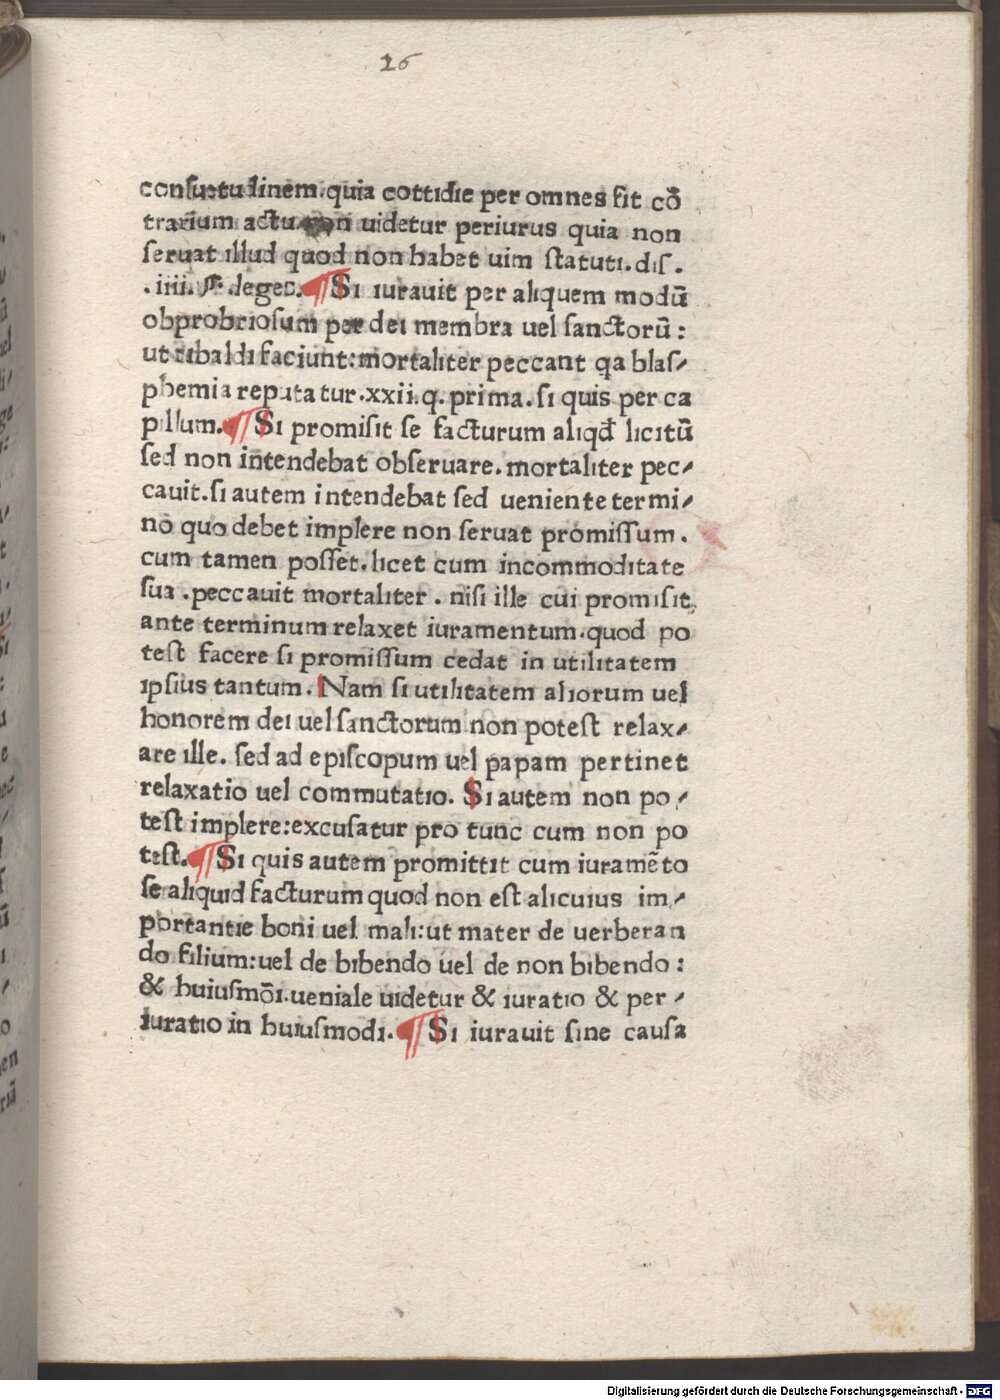 26
conſuetudinem.quia cottidie per omnes fit cō
trarium actu non uidetur periurus quia non
ſeruat illud quod non habet uim ſtatuti.diſ.
.iiii. deges.¶ Si iurauit per aliquem modū
obprobrioſum per dei membra uel ſanctorū:
ut ribaldi faciunt:mortaliter peccant qa blaſ⸗
phemia reputatur.xxii.q.prima.ſi quis per ca
pillum.¶ Si promiſit ſe facturum aliqd̄ licitū
ſed non intendebat obſeruare.mortaliter pec⸗
cauit.ſi autem intendebat ſed ueniente termi⸗
no quo debet implere non ſeruat promiſſum.
cum tamen poſſet.licet cum incommoditate
ſua.peccauit mortaliter. niſi ille cui promiſit
ante terminum relaxet iuramentum.quod po
teſt facere ſi promiſſum cedat in utilitatem
ipſius tantum. Nam ſi utilitatem aliorum uel
honorem dei uel ſanctorum non poteſt relax⸗
are ille. ſed ad epiſcopum uel papam pertinet
relaxatio uel commutatio. Si autem non po⸗
teſt implere:excuſatur pro tunc cum non po
teſt.¶ Si quis autem promittit cum iuramēto
ſe aliquid facturum quod non eſt alicuius im⸗
portantie boni uel mali:ut mater de uerberan
do filium:uel de bibendo uel de non bibendo:
& huiuſmōi.ueniale uidetur & iuratio & per⸗
iuratio in huiuſmodi.¶ Si iurauit ſine cauſa
Digitalisierung gefördert durch die Deutsche Forschungsgemeinschaft - DFG